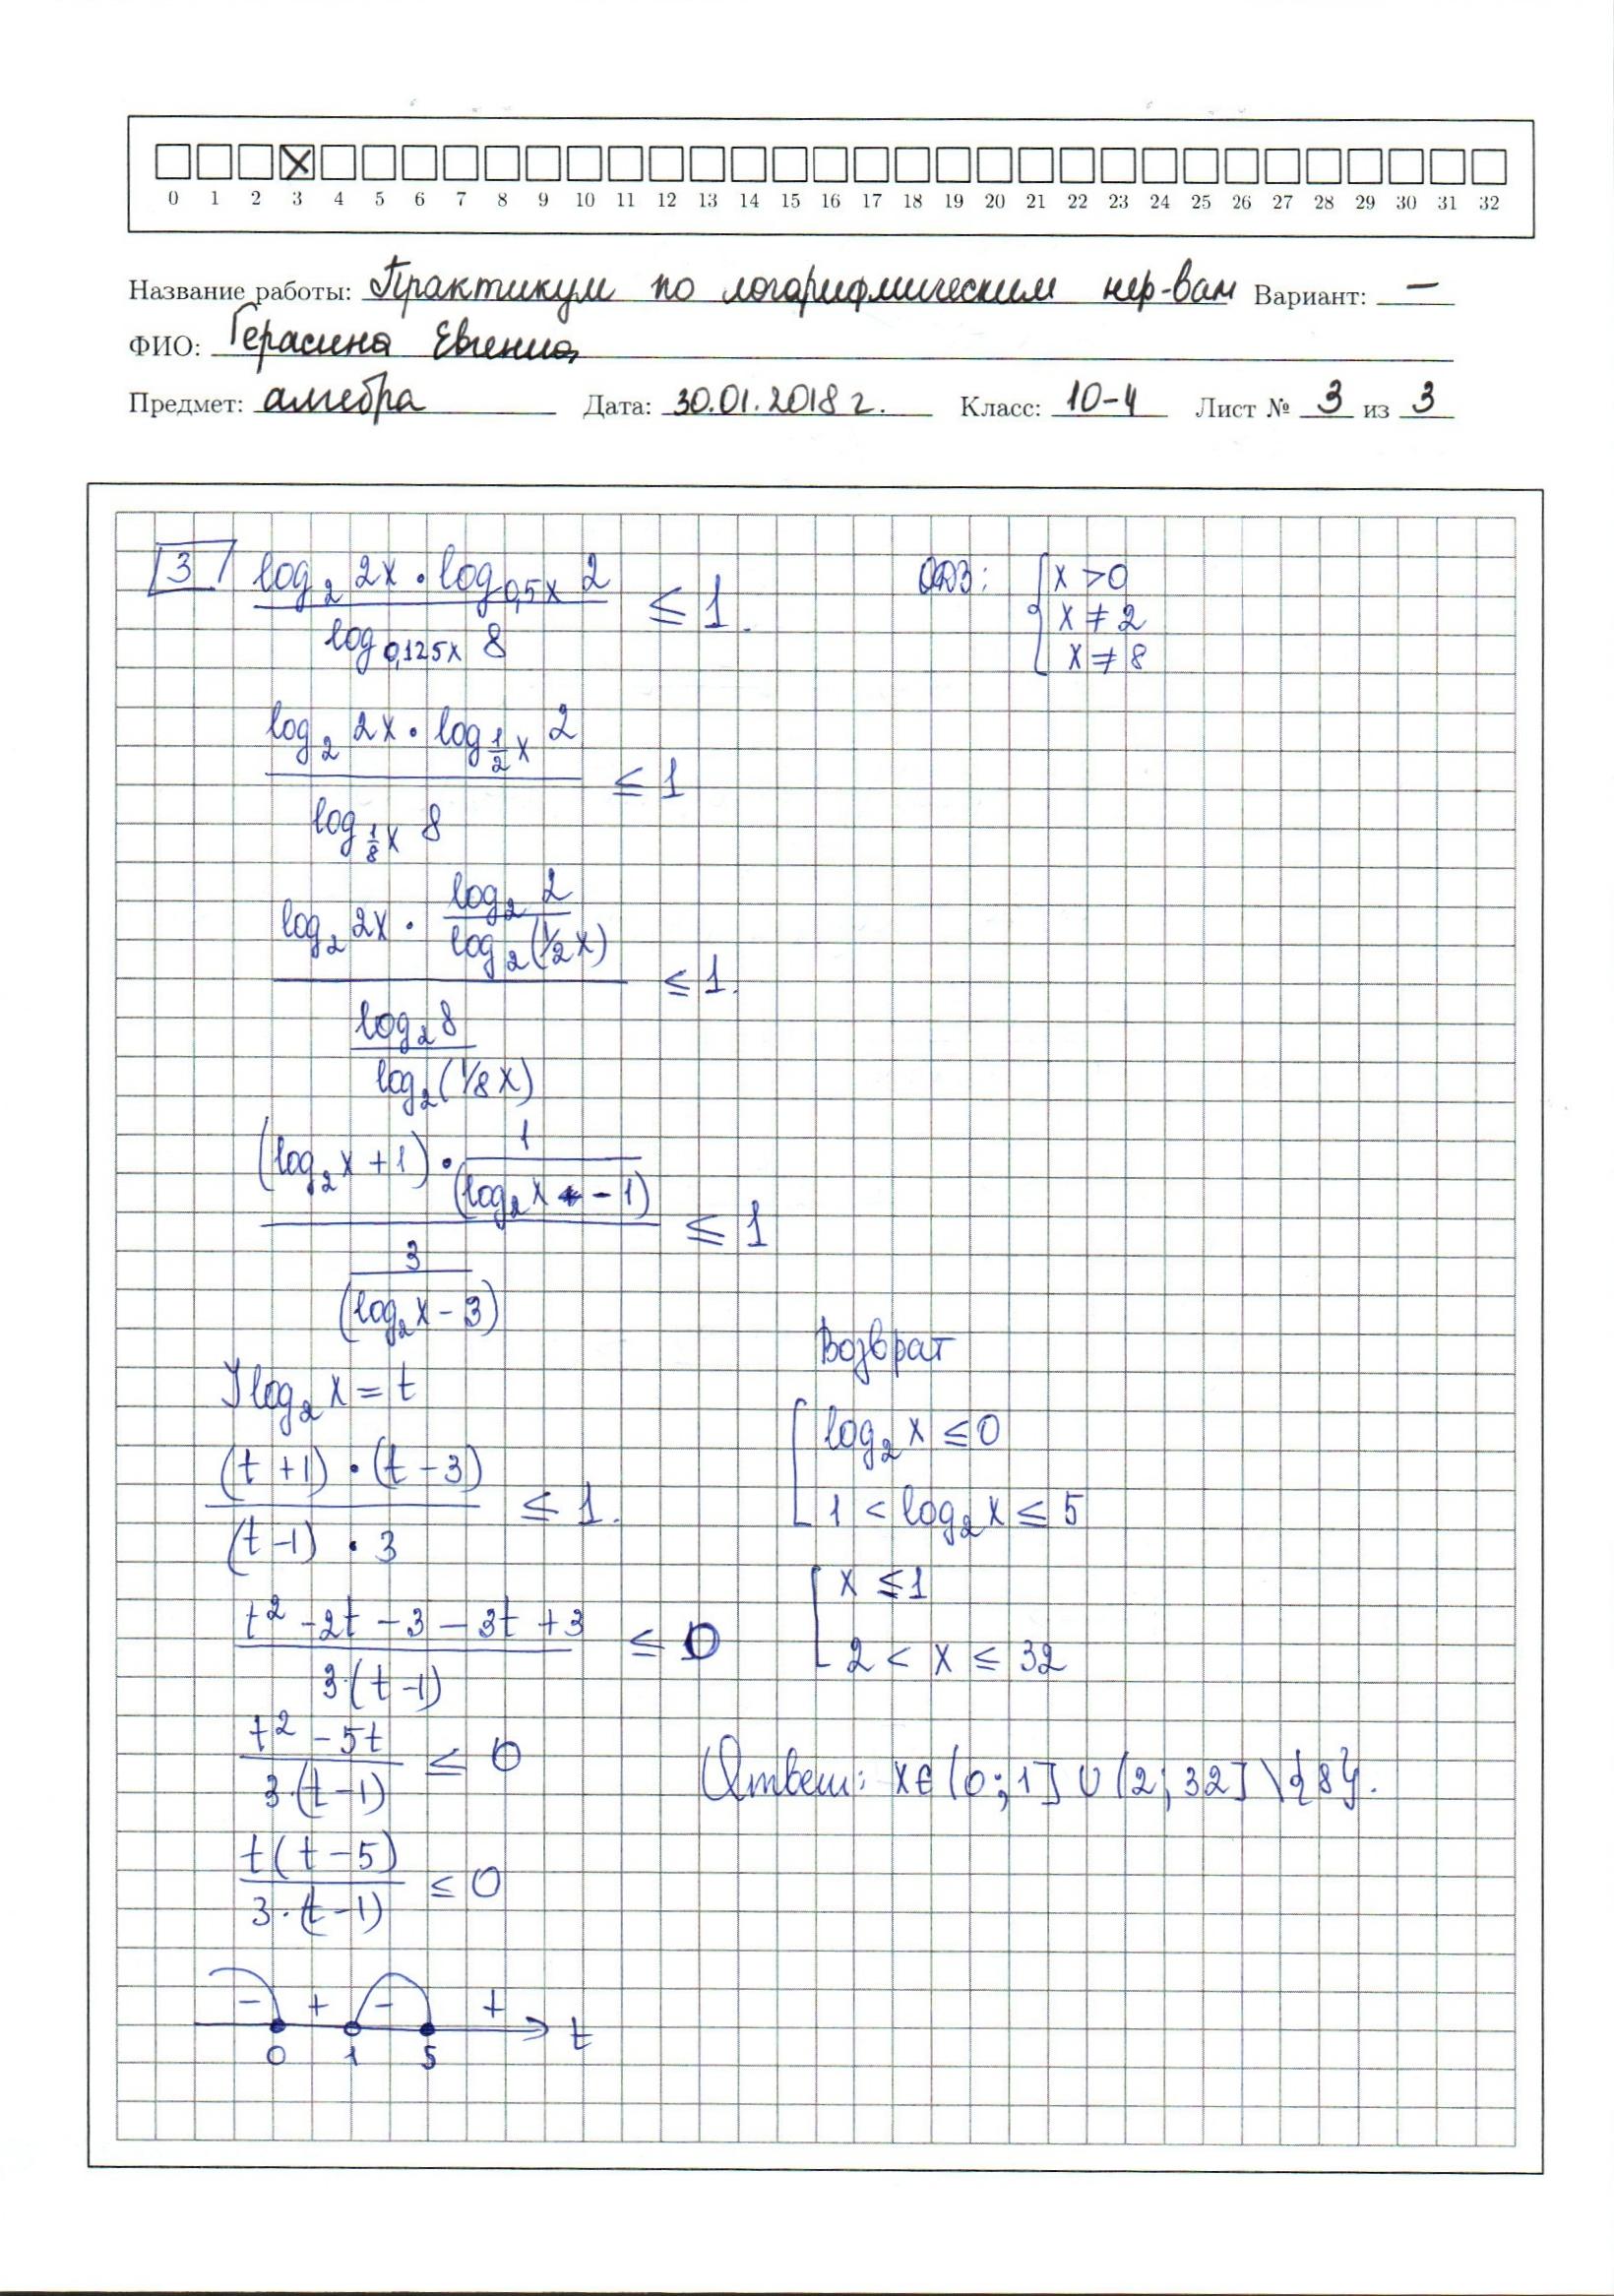 0 1 2 3 4 5 6 7 8 9 10 11 12 13 14 15 16 17 18 19 20 21 22 23 24 25 26 27 28 29 30 31 32
Название работы: Практикум по логарифмическим нер-вам Вариант: —
ФИО: Герасина Евгения
Предмет: алгебра Дата: 30.01.2018 г. Класс: 10-4 Лист № 3 из 3
3 (log₂ 2x · log_{0,5x} 2) / (log_{0,125x} 8) ≤ 1.
ОДЗ: { x > 0
x ≠ 2
x ≠ 8
(log₂ 2x · log_{1/2 x} 2) / (log_{1/8 x} 8) ≤ 1
(log₂ 2x · (log₂ 2) / (log₂(1/2x))) / ((log₂ 8) / (log₂(1/8x))) ≤ 1.
((log₂ x + 1) · 1 / (log₂ x - 1)) / (3 / (log₂ x - 3)) ≤ 1
J log₂ x = t
((t + 1) · (t - 3)) / ((t - 1) · 3) ≤ 1.
(t² - 2t - 3 - 3t + 3) / (3·(t - 1)) ≤ 0
(t² - 5t) / (3·(t - 1)) ≤ 0
(t(t - 5)) / (3·(t - 1)) ≤ 0
- + - +
0 1 5 t
Возврат
[ log₂ x ≤ 0
1 < log₂ x ≤ 5
[ x ≤ 1
2 < x ≤ 32
Ответ: x ∈ (0; 1] ∪ (2; 32] \ {8}.